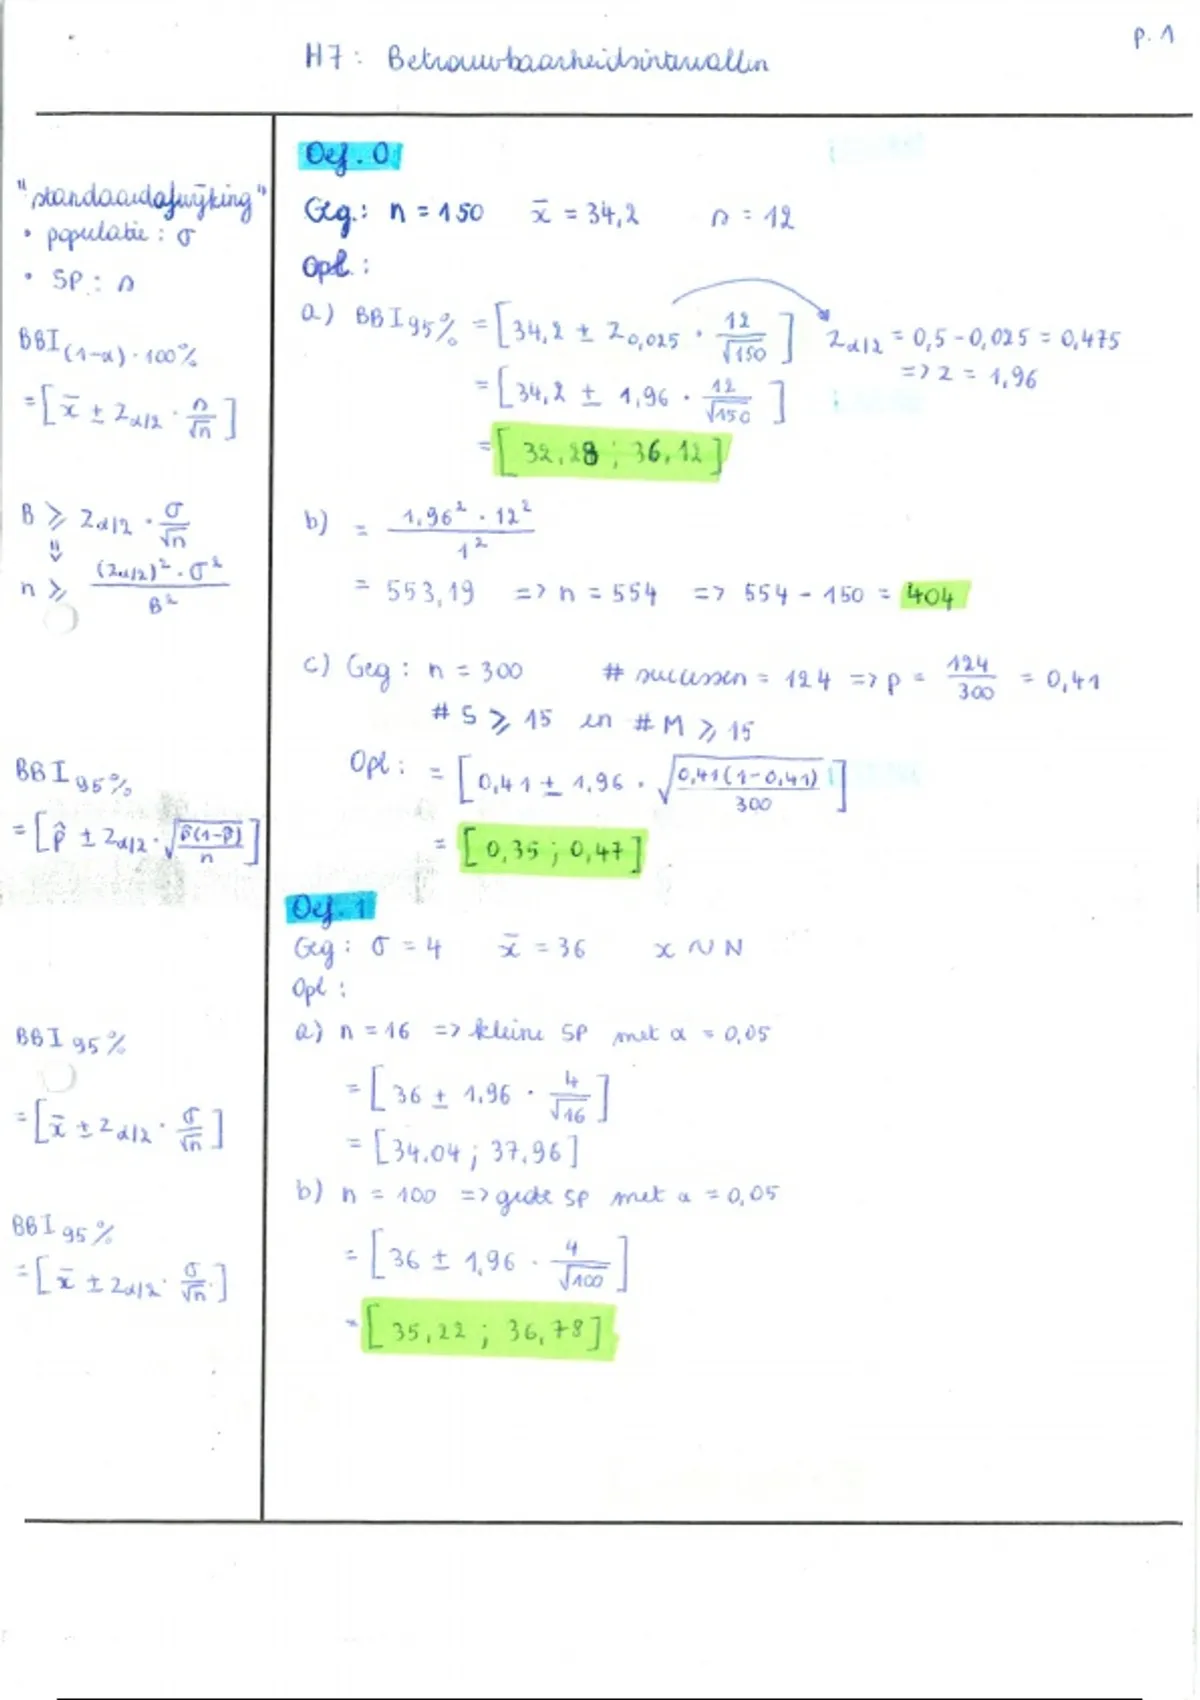 p. 1
H7 : Betrouwbaarheidsintervallen
"standaardafwijking"
• populatie : σ
• SP : s
BBI (1-α) · 100%
= [ x̄ ± Zα/2 · s/√n ]
B ⩾ Zα/2 · σ/√n
⇓
n ⩾ (Zα/2)² · σ² / B²
BBI 95%
= [ p̂ ± Zα/2 · √(p̂(1-p̂)/n) ]
BBI 95%
= [ x̄ ± Zα/2 · σ/√n ]
BBI 95%
= [ x̄ ± Zα/2 · σ/√n ]
Oef. 0
Geg.: n = 150 x̄ = 34,2 s = 12
Opl. :
a) BBI 95% = [ 34,2 ± Z0,025 · 12/√150 ] Zα/2 = 0,5 - 0,025 = 0,475
=> z = 1,96
= [ 34,2 ± 1,96 · 12/√150 ]
= [ 32,28 ; 36,12 ]
b) = 1,96² · 12² / 1²
= 553,19 => n = 554 => 554 - 150 = 404
c) Geg : n = 300 # successen = 124 => p = 124/300 = 0,41
# S ⩾ 15 en # M ⩾ 15
Opl : = [ 0,41 ± 1,96 · √(0,41(1-0,41)/300) ]
= [ 0,35 ; 0,47 ]
Oef. 1
Geg : σ = 4 x̄ = 36 x ~ N
Opl :
a) n = 16 => kleine SP met α = 0,05
= [ 36 ± 1,96 · 4/√16 ]
= [34,04 ; 37,96]
b) n = 100 => grote SP met α = 0,05
= [ 36 ± 1,96 · 4/√100 ]
= [ 35,22 ; 36,78 ]